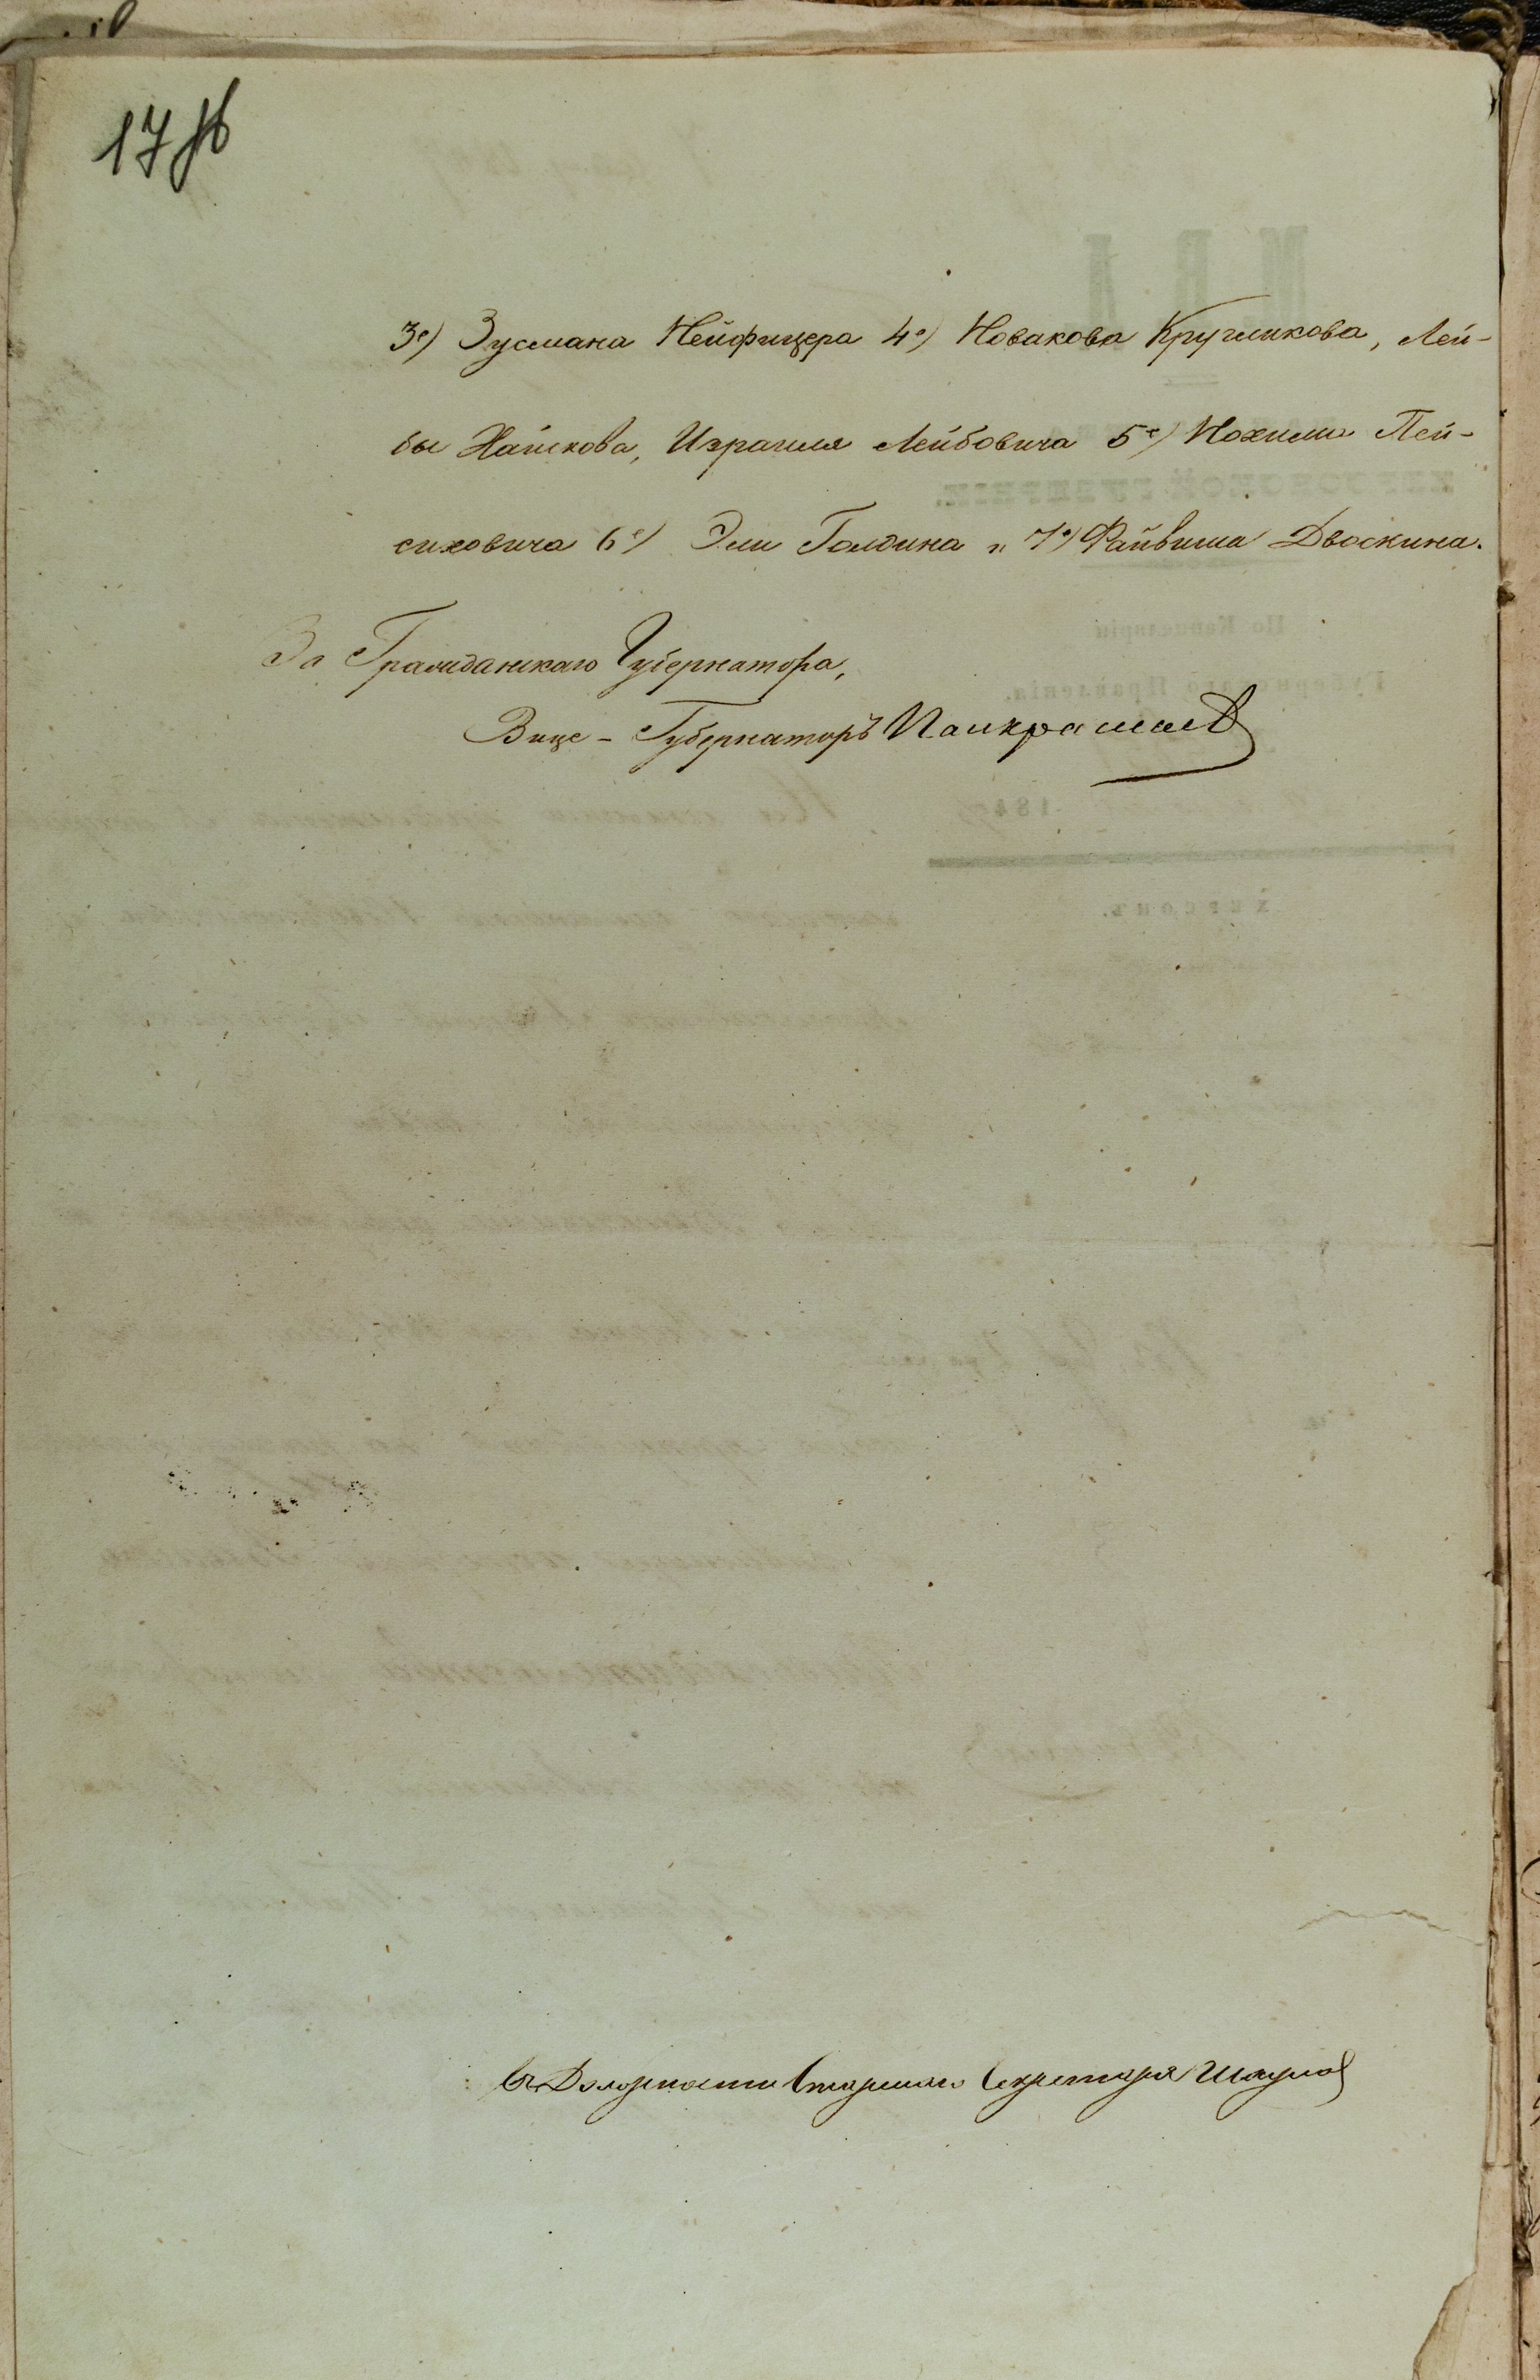 17 об
3е) Зусмана Нейфицера 4е) Новакова Кругликова, Лей-
бы Хайкова, Израиля Лейбовича 5е) Нохима Пей-
сиховича 6е) Эли Голдина и 7е) Файвиша Двоскина.
За Гражданскаго Губернатора,
Вице-Губернаторъ Панкратьев
Въ Должности Старшаго Секретаря